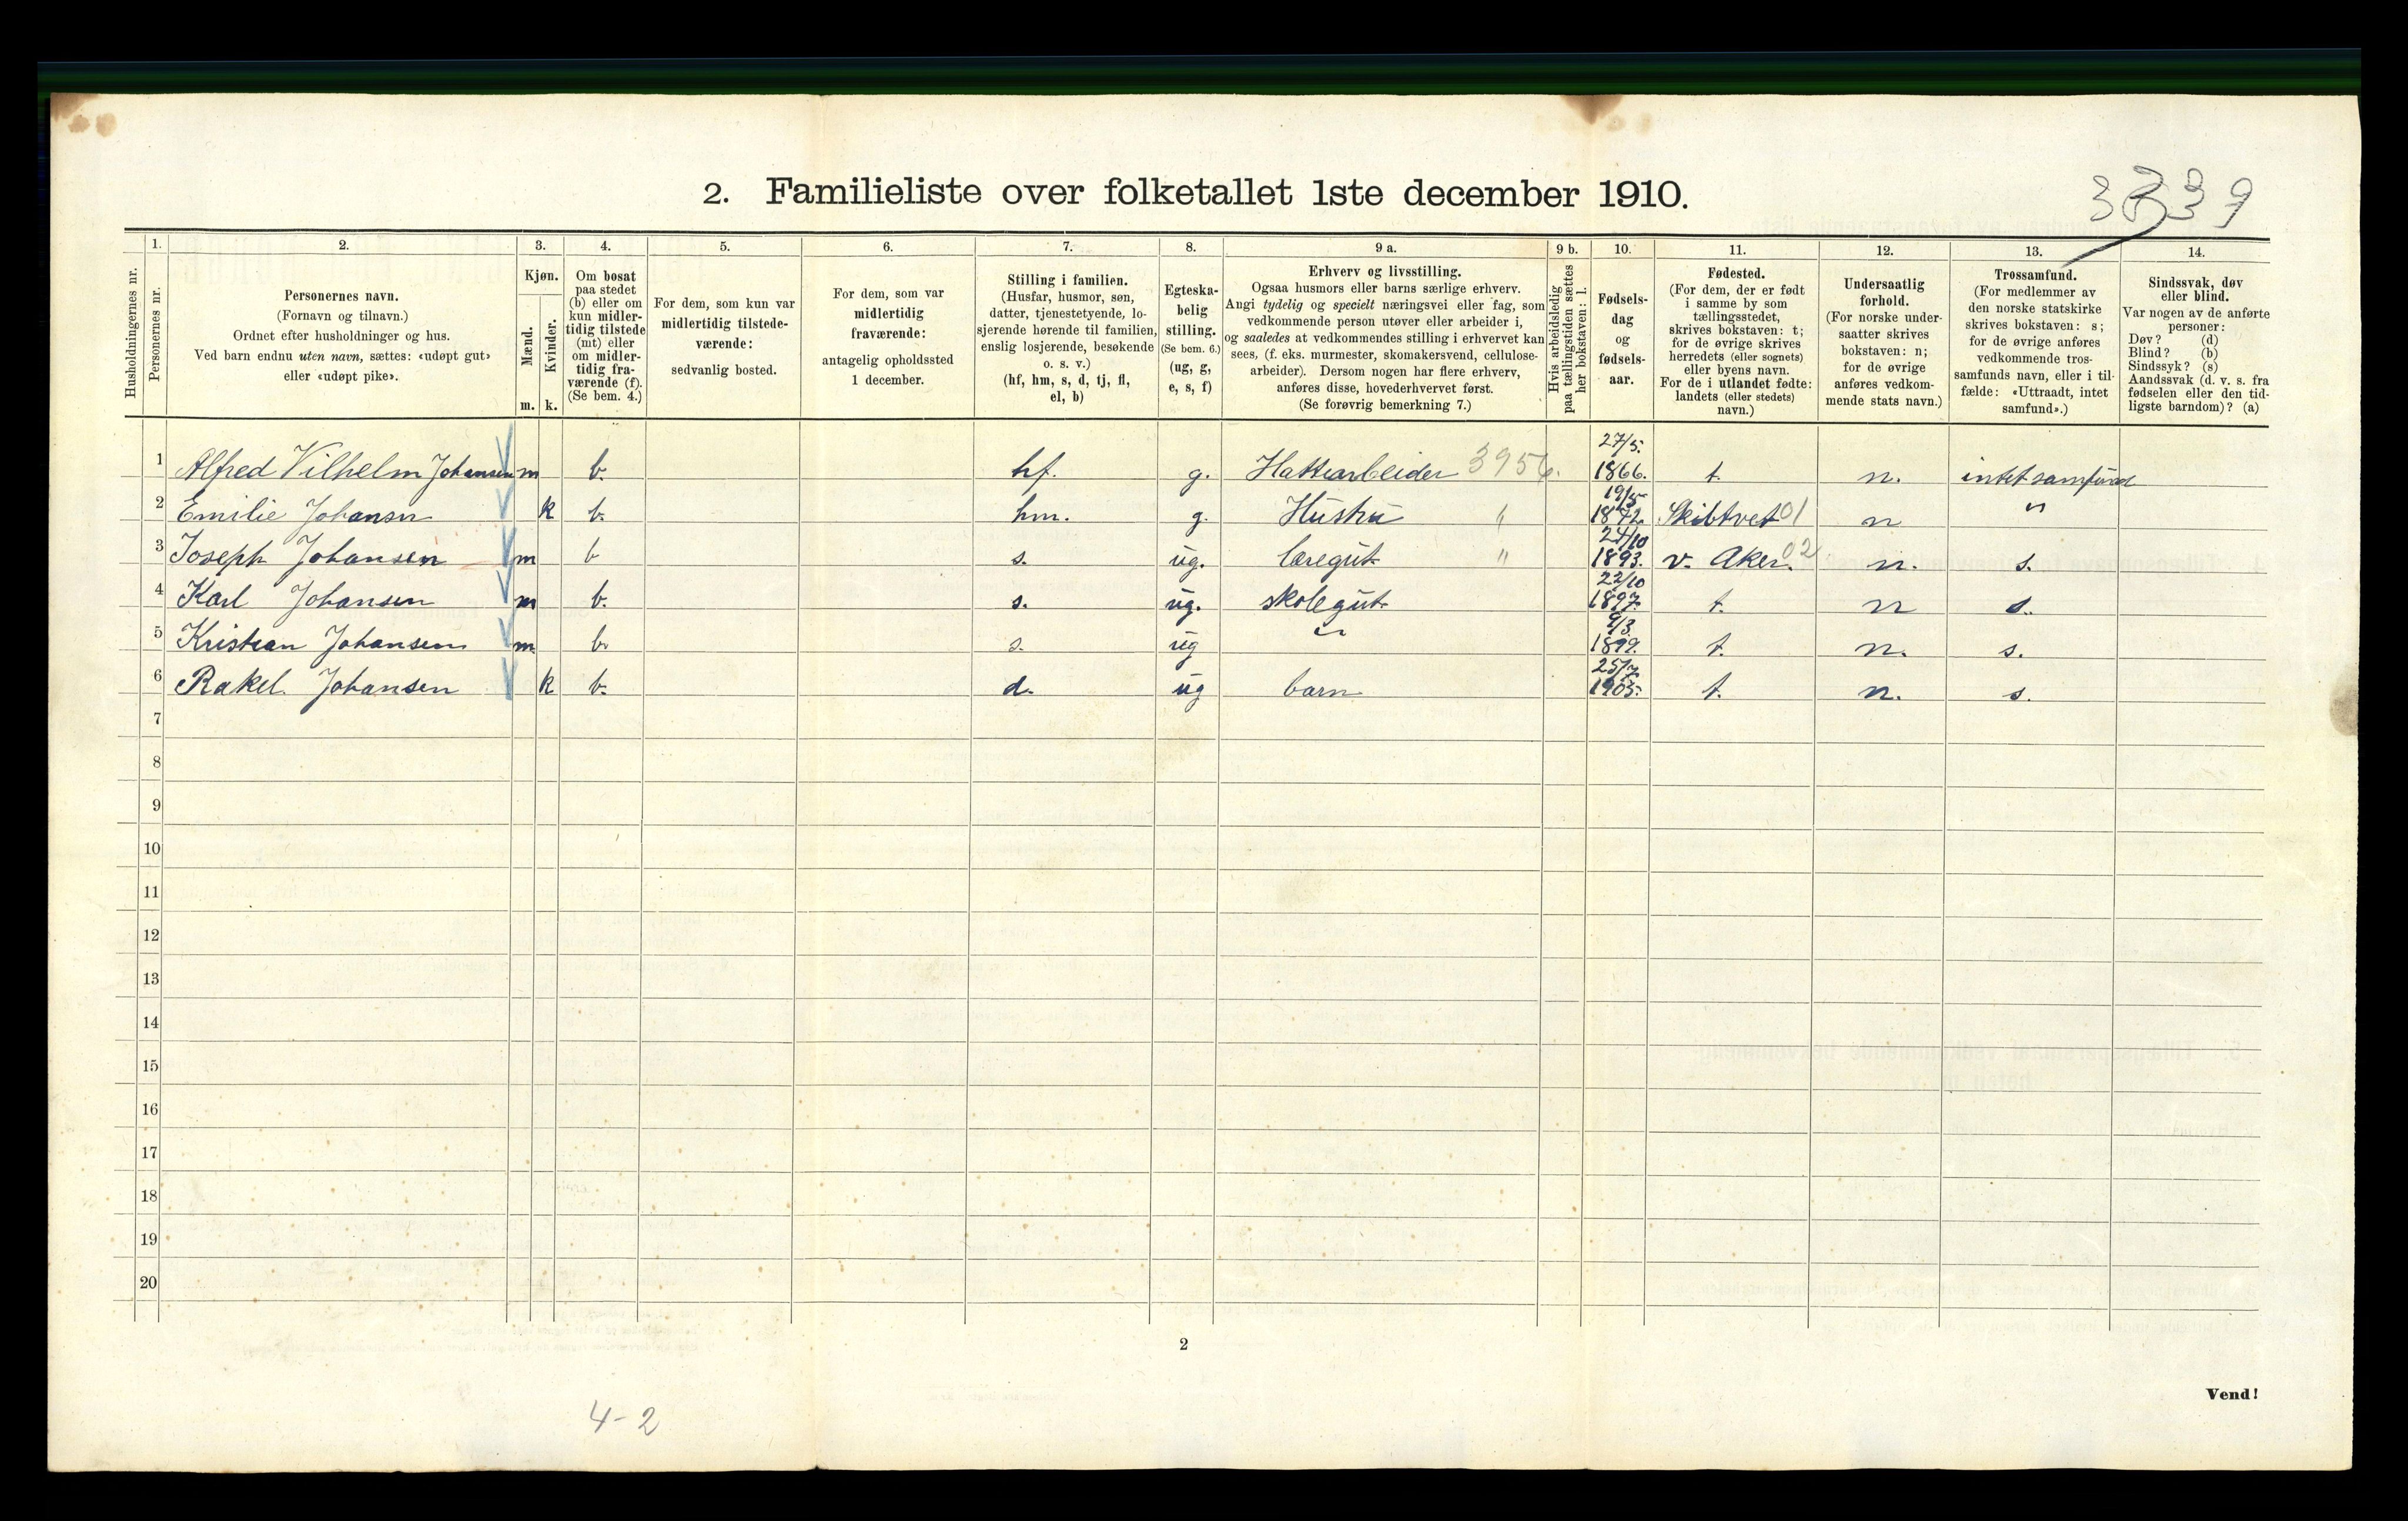 2. Familieliste over folketallet 1ste december 1910.
Husholdningernes nr.
1. Personernes nr.
2.
Personernes navn.
(Fornavn og tilnavn.)
Ordnet efter husholdninger og hus.
Ved barn endnu uten navn, sættes: «udøpt gut»
eller «udøpt pike».
3.
Kjøn.
Mænd.
Kvinder.
m. k.
4.
Om bosat
paa stedet
(b) eller om
kun midler-
tidig tilstede
(mt) eller
om midler-
tidig fra-
værende (f).
(Se bem. 4.)
5.
For dem, som kun var
midlertidig tilstede-
værende:
sedvanlig bosted.
6.
For dem, som var
midlertidig
fraværende:
antagelig opholdssted
1 december.
7.
Stilling i familien.
(Husfar, husmor, søn,
datter, tjenestetyende, lo-
sjerende hørende til familien,
enslig losjerende, besøkende
o. s. v.)
(hf, hm, s, d, tj, fl,
el, b)
8.
Egteska-
belig
stilling.
(Se bem. 6.)
(ug, g,
e, s, f)
9 a.
Erhverv og livsstilling.
Ogsaa husmors eller barns særlige erhverv.
Angi tydelig og specielt næringsvei eller fag, som
vedkommende person utøver eller arbeider i,
og saaledes at vedkommendes stilling i erhvervet kan
sees, (f. eks. murmester, skomakersvend, cellulose-
arbeider). Dersom nogen har flere erhverv,
anføres disse, hovederhvervet først.
(Se forøvrig bemerkning 7.)
9 b.
Hvis arbeidsledig
paa tællingstiden sættes
her bokstaven: l.
10.
Fødsels-
dag
og
fødsels-
aar.
11.
Fødested.
(For dem, der er født
i samme by som
tællingsstedet,
skrives bokstaven: t;
for de øvrige skrives
herredets (eller sognets)
eller byens navn.
For de i utlandet fødte:
landets (eller stedets)
navn.)
12.
Undersaatlig
forhold.
(For norske under-
saatter skrives
bokstaven: n;
for de øvrige
anføres vedkom-
mende stats navn.)
13.
Trossamfund.
(For medlemmer av
den norske statskirke
skrives bokstaven: s;
for de øvrige anføres
vedkommende tros-
samfunds navn, eller i til-
fælde: «Uttraadt, intet
samfund».)
14.
Sindssvak, døv
eller blind.
Var nogen av de anførte
personer:
Døv? (d)
Blind? (b)
Sindssyk? (s)
Aandssvak (d. v. s. fra
fødselen eller den tid-
ligste barndom)? (a)
1 Alfred Vilhelm Johansen m b. hf. g. Hattearbeider 3956. 27/5. 1866. t. n. intet samfund
2 Emilie Johansn k b. hm. g. Hustru " 19/5 1872 Skibtvet 01 n "
3 Joseph Johansen m b s. ug. læregut " 24/10 1893. v. Aker. 02 n. s.
4 Karl Johansen m b. s. ug. skolegut 22/10 1897 t. n s.
5 Kristian Johansen m. b. s. ug " 9/3 1899. t. n. s.
6 Rakel Johansen k b. d. ug barn 25/7 1905. t. n. s.
7
8
9
10
11
12
13
14
15
16
17
18
19
20
2
Vend!
4-2